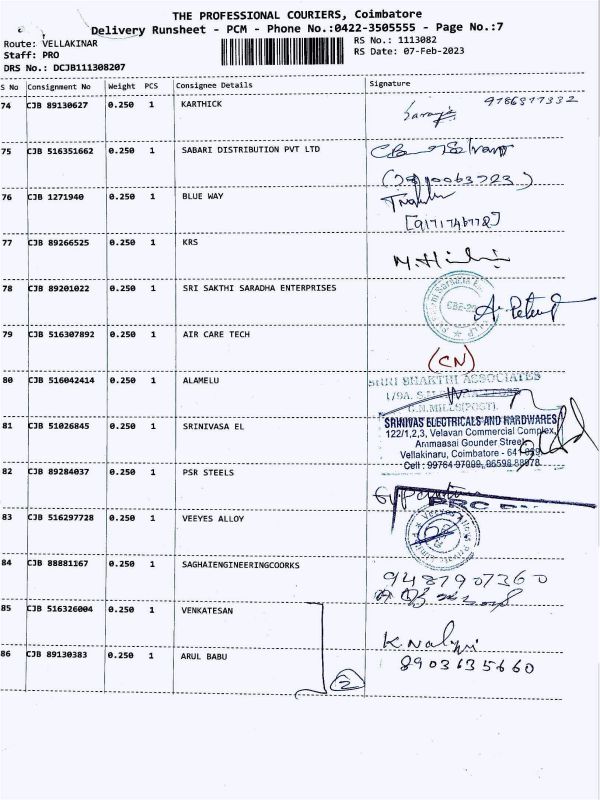 THE PROFESSIONAL COURIERS, Coimbatore
Delivery Runsheet - PCM - Phone No.:0422-3505555 - Page No.:7
Route: VELLAKINAR
RS No.: 1113082
Staff: PRO
RS Date: 07-Feb-2023
DRS No.: DCJB111308207
S No Consignment No Weight PCS Consignee Details Signature
74 CJB 89130627 0.250 1 KARTHICK
75 CJB 516351662 0.250 1 SABARI DISTRIBUTION PVT LTD
76 CJB 1271940 0.250 1 BLUE WAY
77 CJB 89266525 0.250 1 KRS
78 CJB 89201022 0.250 1 SRI SAKTHI SARADHA ENTERPRISES
79 CJB 516307892 0.250 1 AIR CARE TECH
(CN)
80 CJB 516042414 0.250 1 ALAMELU
SHRI SHAKTHI ASSOCIATES
C.N.MILLS(POST).
81 CJB 51026845 0.250 1 SRINIVASA EL
SRINIVAS ELECTRICALS AND HARDWARES
122/1,2,3, Velavan Commercial Complex,
Ammaasai Gounder Street,
Vellakinaru, Coimbatore - 641 029.
82 CJB 89284037 0.250 1 PSR STEELS
83 CJB 516297728 0.250 1 VEEYES ALLOY
84 CJB 88881167 0.250 1 SAGHAIENGINEERINGCOORKS
9487907360
85 CJB 516326004 0.250 1 VENKATESAN
86 CJB 89130383 0.250 1 ARUL BABU
8903635660
2